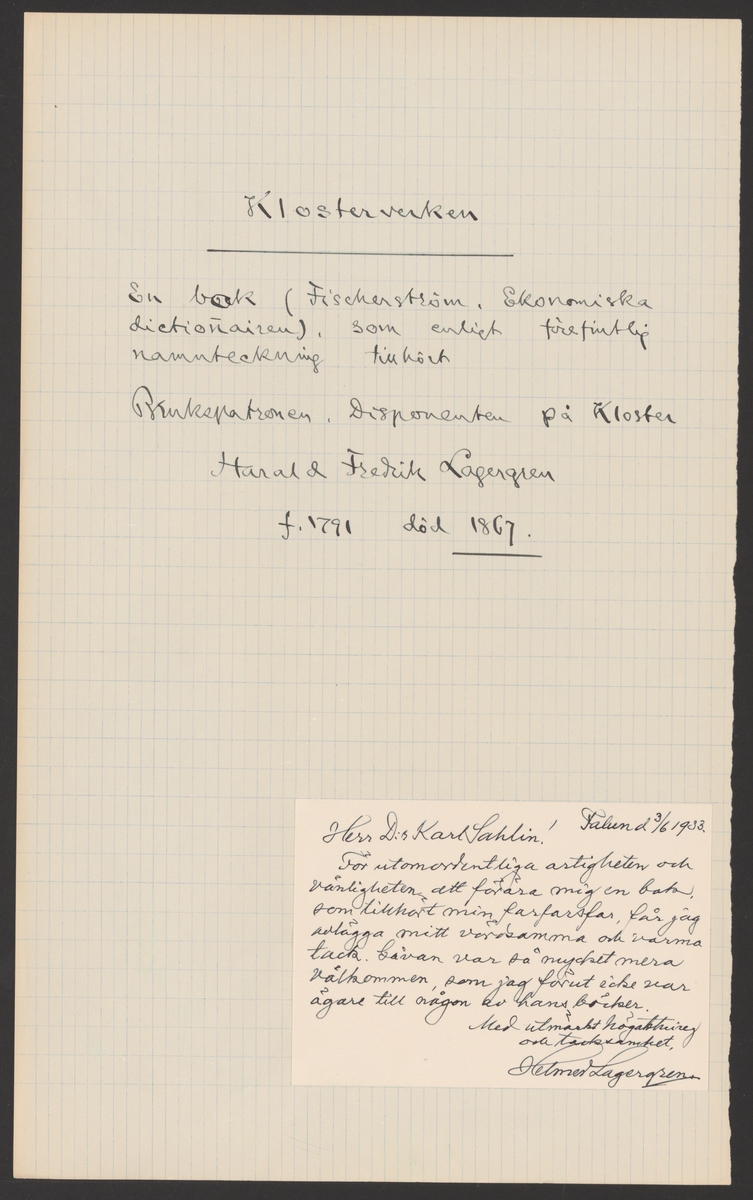 Klosterverken
En bock (Fischerström, Ekonomiska
dictionairen), som enligt förefintlig
namnteckning tillhört
Brukspatronen, Disponenten på Kloster
Harald Fredrik Lagergren
f. 1791 död 1867.
Falun d 3/6 1933.
Herr D:r Karl Sahlin!
För utomordentliga artigheten och
vänligheten att förära mig en bok,
som tillhört min farfarsfar, får jag
avlägga mitt vördsamma och varma
tack. Gåvan var så mycket mera
välkommen, som jag förut icke var
ägare till någon av hans böcker.
Med utmärkt högaktning
och tacksamhet,
Helmer Lagergren